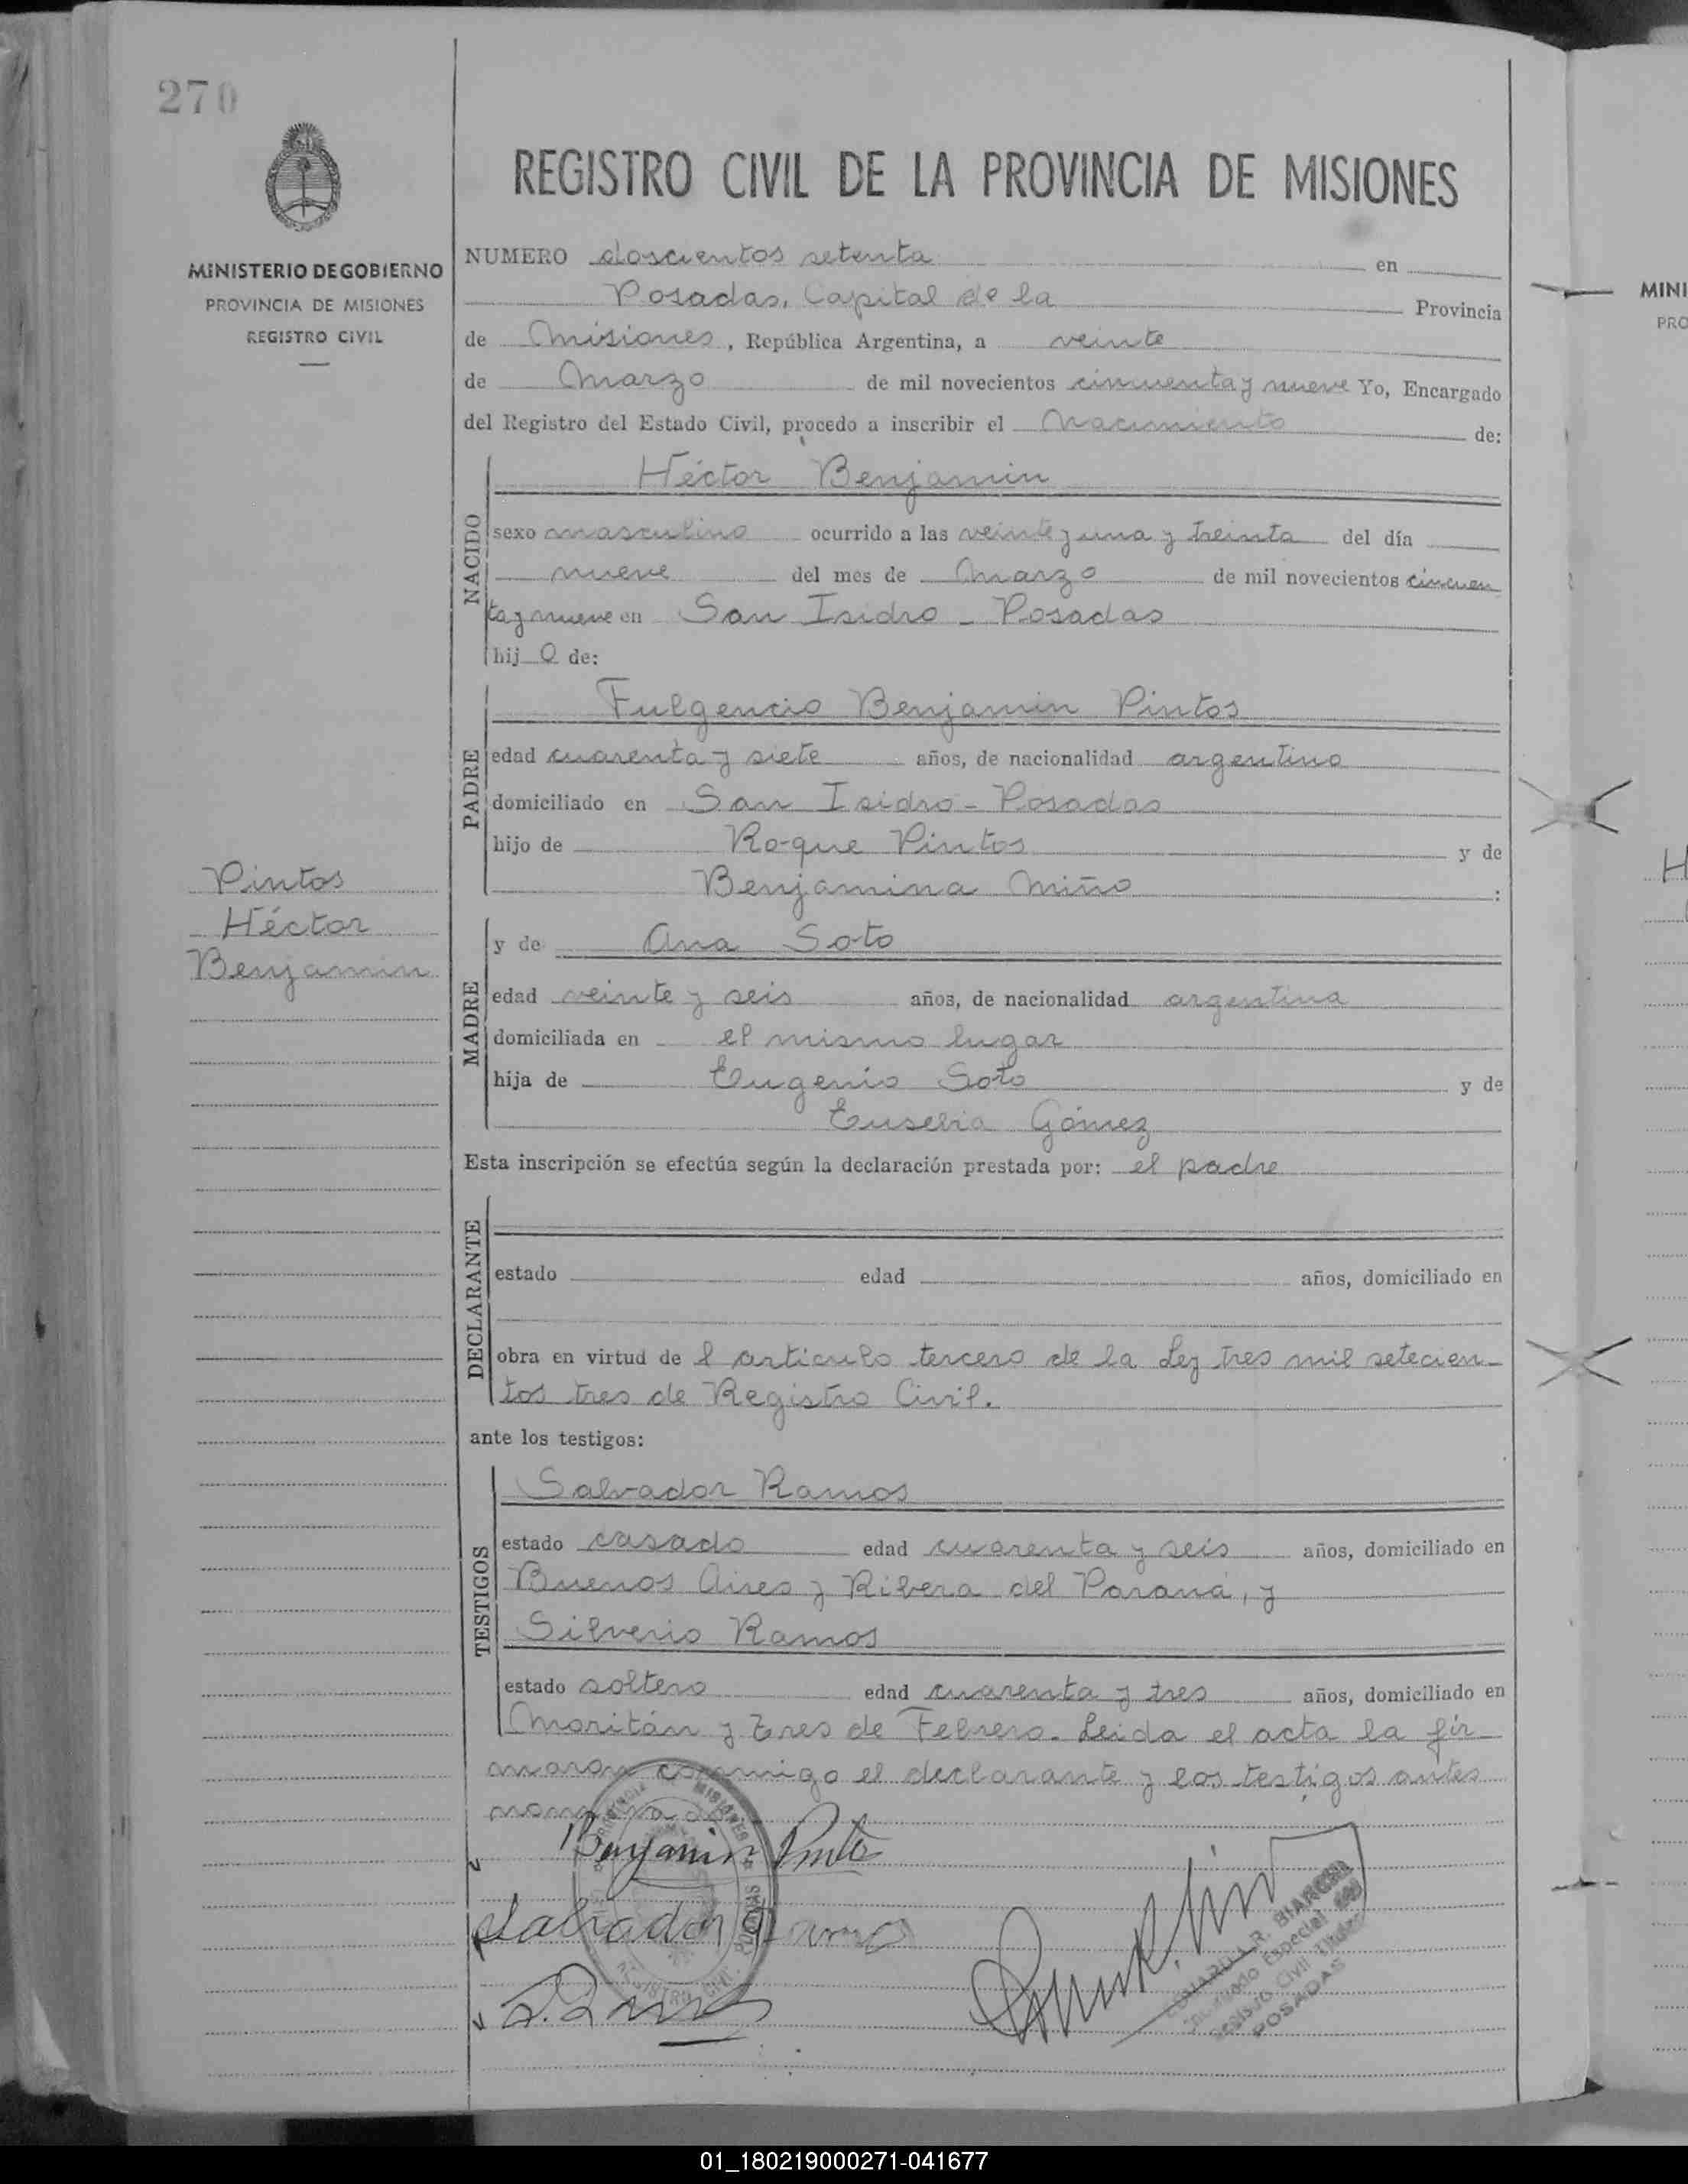 270
REGISTRO CIVIL DE LA PROVINCIA DE MISIONES
MINISTERIO DE GOBIERNO
PROVINCIA DE MISIONES
REGISTRO CIVIL
NUMERO doscientos setenta en
Posadas, Capital de la Provincia
de Misiones, República Argentina, a veinte
de Marzo de mil novecientos cincuenta y nueve Yo, Encargado
del Registro del Estado Civil, procedo a inscribir el Nacimiento de:
NACIDO
Héctor Benjamin
sexo masculino ocurrido a las veinte y una y treinta del día
nueve del mes de Marzo de mil novecientos cincuen
ta y nueve en San Isidro - Posadas
hijo de:
PADRE
Fulgencio Benjamin Pintos
edad cuarenta y siete años, de nacionalidad argentino
domiciliado en San Isidro - Posadas
hijo de Roque Pintos y de
Benjamina Miño :
Pintos
Héctor
Benjamin
MADRE
y de Ana Soto
edad veinte y seis años, de nacionalidad argentina
domiciliada en el mismo lugar
hija de Eugenio Soto y de
Eusebia Gómez
Esta inscripción se efectúa según la declaración prestada por: el padre
DECLARANTE
estado edad años, domiciliado en
obra en virtud del articulo tercero de la Ley tres mil setecien-
tos tres de Registro Civil.
ante los testigos:
TESTIGOS
Salvador Ramos
estado casado edad cuarenta y seis años, domiciliado en
Buenos Aires y Ribera del Paraná, y
Silverio Ramos
estado soltero edad cuarenta y tres años, domiciliado en
Moritán y Tres de Febrero. Leida el acta la fir-
maron conmigo el declarante y los testigos antes
Benjamin Pinto
Salvador Ramos
S. Ramos
R. BIANCHI
Especial
Registro Civil Titular
POSADAS
PROVINCIA MISIONES
POSADAS
REGISTRO CIVIL
MINI
PRO
H
01_180219000271-041677